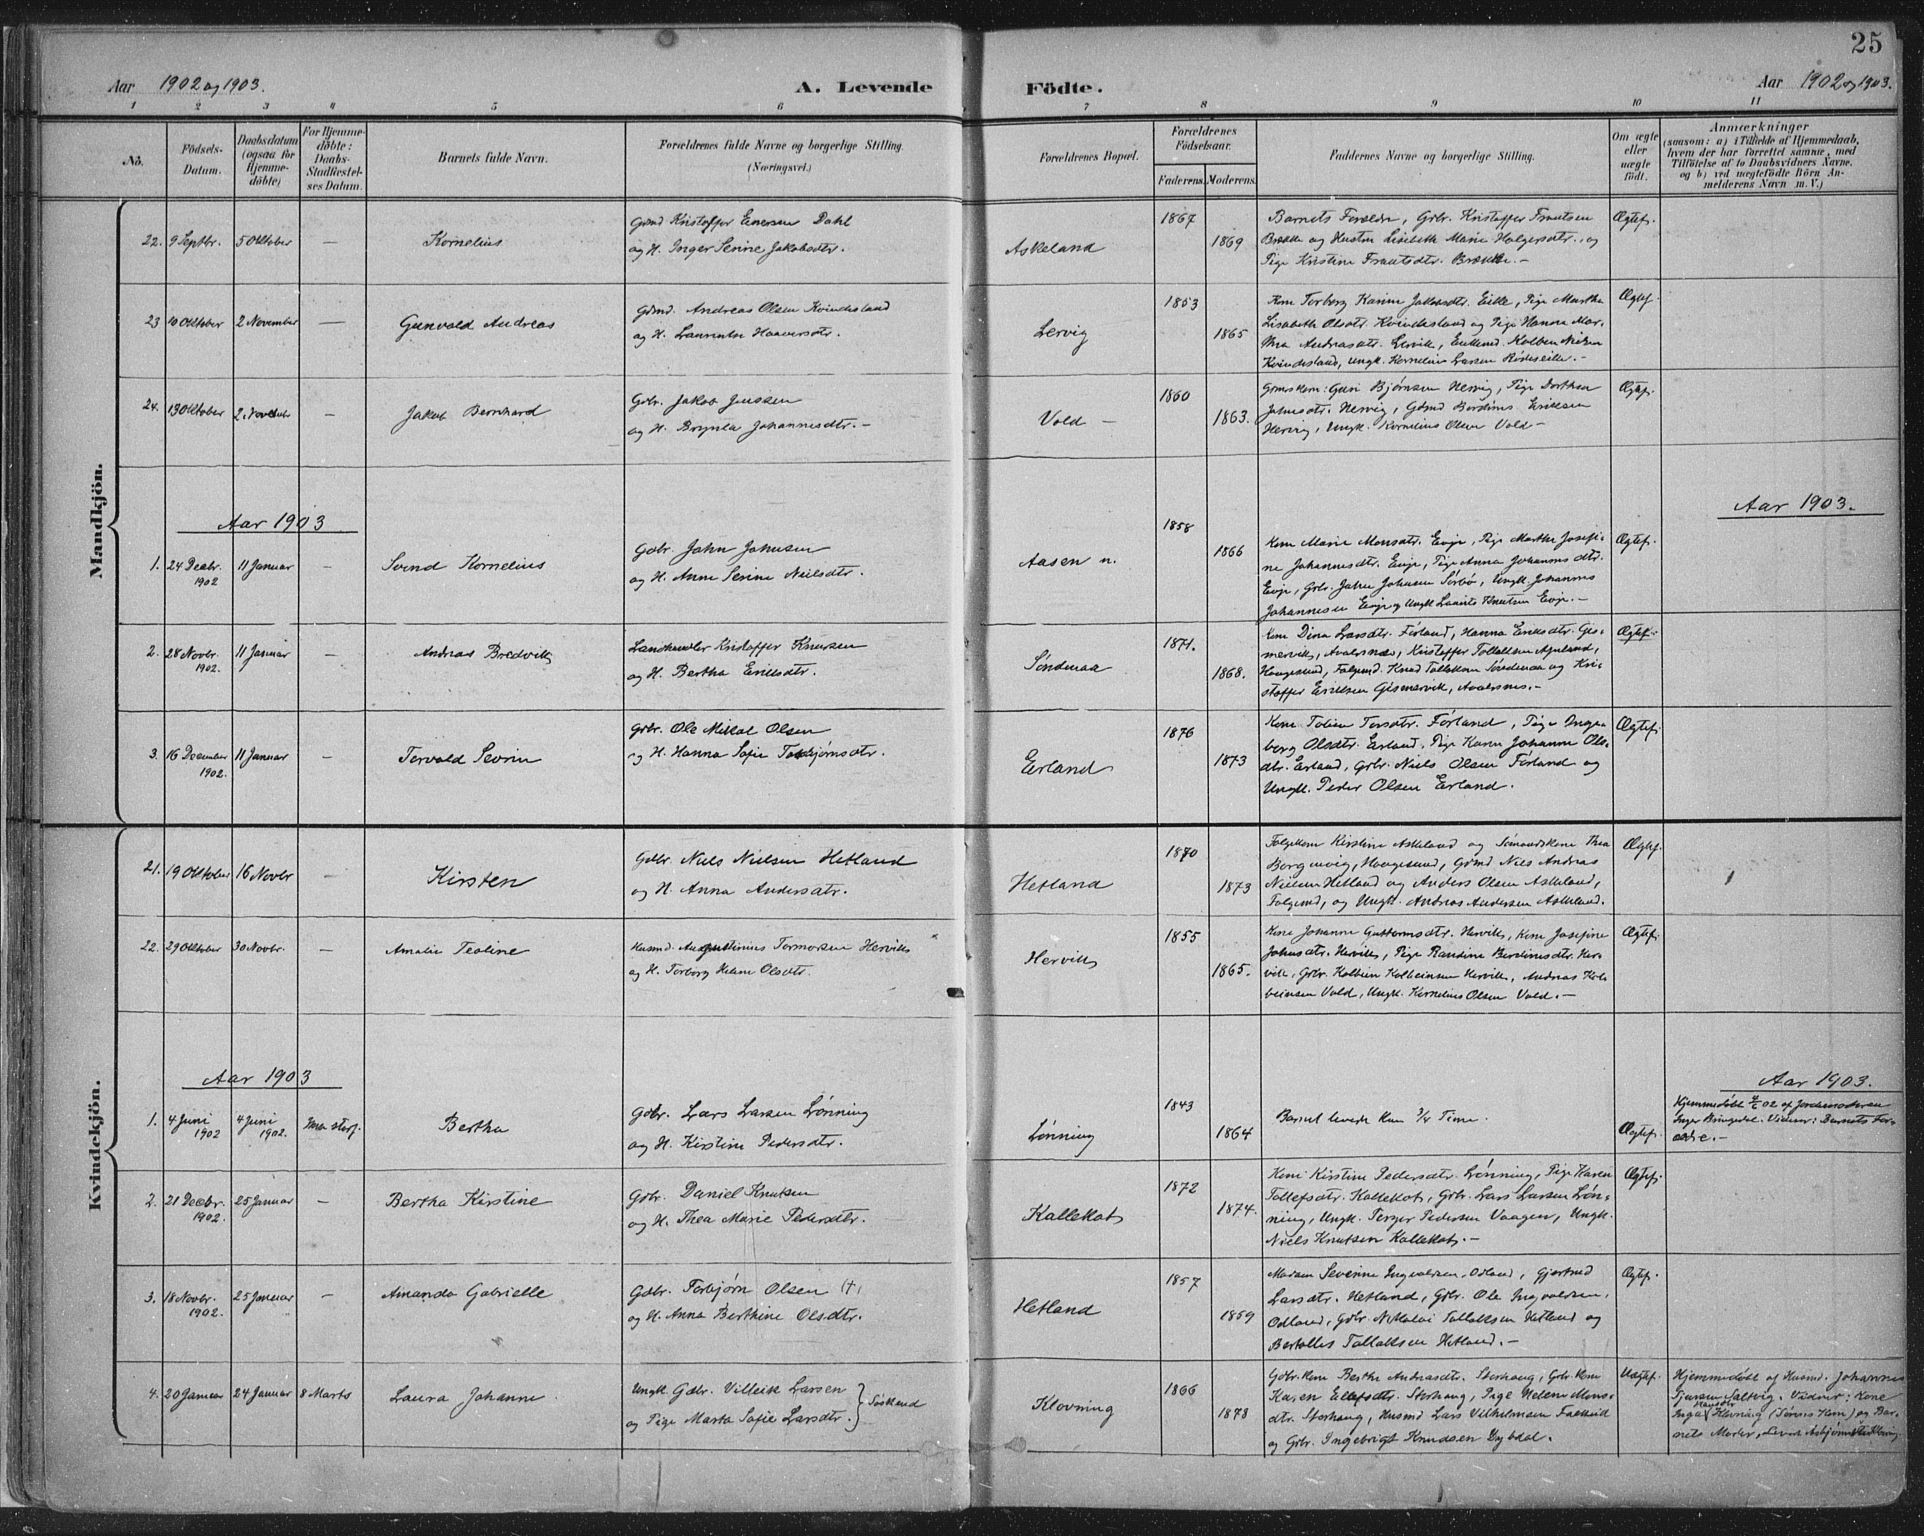 25
Aar 1902 og 1903.
A. Levende Födte.
Aar 1902 og 1903.
1 2 3 4 5 6 7 8 9 10 11
No.
Födsels-Datum.
Daabsdatum (ogsaa for Hjemme-döbte)
For Hjemme-döbte: Daabs-Stadfæstel-ses Datum.
Barnets fulde Navn.
Forældrenes fulde Navne og borgerlige Stilling. (Næringsvei.)
Forældrenes Bopæl.
Forældrenes Födselsaar.
Faderens. Moderens.
Faddernes Navne og borgerlige Stilling.
Om ægte eller uægte födt.
Anmærkninger
(saasom: a) i Tilfælde af Hjemmedaab,
hvem der har forrettet samme, med
Tilföielse af to Daabsvidners Navne.
og b) ved uægtefödte Börn An-
melderens Navn m. V.)
Mandkjön.
22. 9 Septbr. 5 Oktober — Kornelius
Gdmd Kristoffer Enersen Dahl
og H. Inger Serine Jakobsdtr.
Askeland
1867
1869
Barnets Forældre, Gbr. Kristoffer
Brække og Hustru Lisebeth Marie Holgersdtr. og
Pige Kristine Brække. —
Ægtef.
23 10 Oktober 2 November — Gunvald Andreas
Gdmd. Andreas Olsen Kvindesland
og H. Laurentse
Lervig
1853
1865
Kone Torborg Karine Jakobsdtr. Eikje, Pige Martha
Lisabeth Olsdtr. Kvindesland og Pige Hanna Mar-
tha Andreasdtr. Lervik, Enkemd. Kolben Nilsen
Kvindesland, Ungk. Kornelius Larsen
Ægtef.
24. 13 Oktober 2 Novembr — Jakob Bernhard
Gbr. Jakob Jenssen
og H. Brynla Johannesdtr. —
Vold —
1860
1863.
Guri Bjørnsen Hervig, Pige Dorthea
Johnsdtr. Hervig, Gdmd Berdines Eriksen
Hervig, Ungk. Kornelius Olsen Vold —
Ægtef.
Aar 1903
Aar 1903.
1. 24 Decbr. 1902 11 Januar — Svend Kornelius
Gdbr. John Johnsen
og H. Anne Serine Nielsdtr.
Aasen n.
1858
1866
Kone Marie Monsdtr. Evje, Pige Marthe Josefi-
ne Johannesdtr. Evje, Pige Anna Johannesdtr.
Evje, Gbr. John Johnsen Sørbø, Ungk. Johannes
Johannesen Evje og Ungk Laurits Knutsen Evje. —
Ægtef.
2. 28 Novbr. 1902. 11 Januar — Andreas Bredvik
Landhandler Kristoffer Knutsen
og H. Bertha Eriksdtr.
Søndenaa
1871.
1868.
Kone Dina Larsdtr. Førland, Hanna Eriksdtr. Gis-
mervik, Avalsnæs, Kristoffer Tollaksen
Haugesund, Knud Tollaksen Søndenaa og Kri-
stoffer Eriksen Gismervik, Avalsnes. —
Ægtef.
3. 16 December 1902. 11 Januar — Torvald Severin
Gbr. Ole Mikal Olsen
og H. Hanna Sofie Torbjørnsdtr.
Eerland
1876
1873
Kone Toline Torsdtr. Førland, Pige Inge-
borg Olsdtr. Eerland, Pige Karen Johanne Ols-
dtr. Eerland, Gbr. Niels Olsen Førland og
Ungk. Peder Olsen Eerland.
Ægtef.
Kvindekjön.
21. 19 Oktober 16 Novbr Kirsten
Gdbr. Niels Nielsen Hetland
og H. Anna Andersdtr.
Hetland
1870
1873
Kirstine Askeland og Sømandskone Thea
Haugesund, Gdmd Niels Andreas
Nielsen Hetland og Anders Olsen Askeland,
og Ungk. Andreas Andersen Askeland.
Ægtef.
22. 29 Oktober 30 Novbr. — Amalie Teoline
Husmd. Augustinius Tormorsen Hervik
og H. Torborg Helene Olsdtr.
Hervik
1855
1865.
Kone Johanne Guttormsdtr. Hervik, Kone Josefine
Johnsdtr. Hervik, Pige Randine Berdinesdtr. Her-
vik, Gbr. Kolbein Kolbeinsen Hervik, Andreas Kol-
beinsen Vold, Ungk. Kornelius Olsen Vold. —
Ægtef.
Aar 1903
Aar 1903.
1. 4 Juni 1902 4 Juni 1902. Bertha
Gdbr. Lars Larsen Lønning
og H. Kirstine Pedersdtr.
Lønning
1843
1864
Barnet levede kun 3/4 Time.
Ægtef.
Hjemmedøbt 4/6 02 af Jordemoderen
Inger Bringedal. Vidner: Barnets For-
ældre. —
2. 21 Decbr. 1902. 25 Januar — Bertha Kirstine
Gdbr. Daniel Knutsen
og H. Thea Marie Pedersdtr.
Kallekot
1872
1874.
Kone Kirstine Pedersdtr. Lønning, Pige Karen
Tollefsdtr. Kallekot, Gbr. Lars Larsen Løn-
ning, Ungk. Terger Pedersen Vaagen, Ungk.
Niels Knutsen Kallekot. —
Ægtef.
3. 18 Novbr. 1902. 25 Januar — Amanda Gabrielle
Gdbr. Torbjørn Olsen (†)
og H. Anna Berthine Olsdtr.
Hetland
1857
1859
Madam Severine Ingvaldsen, Odland, Gjertrud
Larsdtr. Hetland, Gbr. Ole Ingvaldsen,
Odland, Gdbr Nikolai Tollaksen Hetland og
Tollaksen Hetland. —
Ægtef.
4. 20 Januar 24 Januar 8 Marts Laura Johanne
Ungk. Gdbr. Villeik Larsen
og Pige Marta Sofie Larsdtr.
Klovning
1866
1878
Gdbr. Kone Berthe Andreasdtr. Storhaug, Gbr. Kone
Karen Ellefsdtr. Storhaug, Pige Helene Mons-
dtr. Storhaug, Husmd Lars Vilhelmsen Falkeid
og Gbr. Ingebrigt Knudsen Dybdal.
Uægtef.
Hjemmedøbt af Husmd. Johannes
Saltvig. Vidner: Kone
Inga Hansdtr Klovning og Bar-
nets Moder,